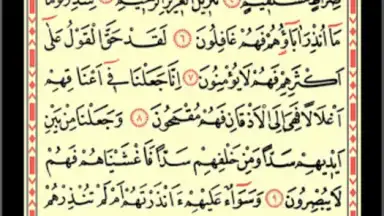 صِرَاطٍ مُسْتَقِيمٍ ٤ تَنْزِيلَ الْعَزِيزِ الرَّحِيمِ ٥ لِتُنْذِرَ قَوْمًا
مَا أُنْذِرَ اٰبَاؤُ۬هُمْ فَهُمْ غَافِلُونَ ٦ لَقَدْ حَقَّ الْقَوْلُ عَلٰٓى
اَكْثَرِهِمْ فَهُمْ لَا يُؤْمِنُونَ ٧ اِنَّا جَعَلْنَا فٓى اَعْنَاقِهِمْ
اَغْلَالًا فَهِىَ اِلَى الْاَذْقَانِ فَهُمْ مُقْمَحُونَ ٨ وَجَعَلْنَا مِنْ بَيْنِ
اَيْدِيهِمْ سَدًّا وَمِنْ خَلْفِهِمْ سَدًّا فَاَغْشَيْنَاهُمْ فَهُمْ
لَا يُبْصِرُونَ ٩ وَسَوَٓاءٌ عَلَيْهِمْ ءَاَنْذَرْتَهُمْ اَمْ لَمْ تُنْذِرْهُمْ